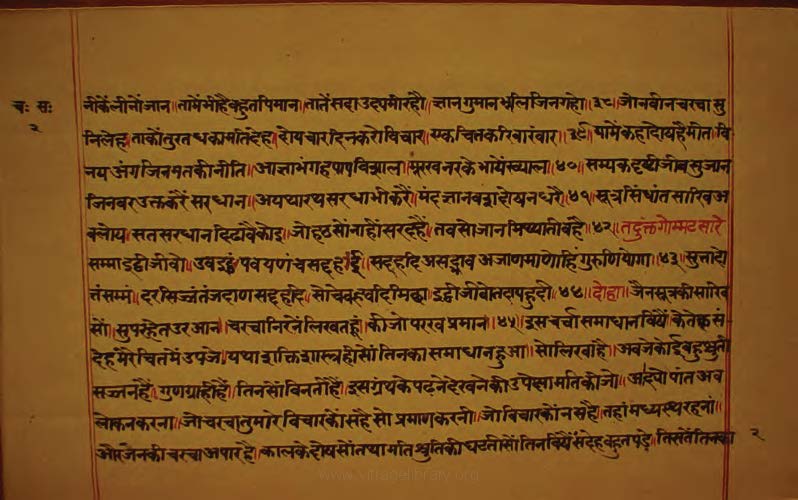 चः सः
२
नीकैं लीनौं जान॥ तामैं भी है बहुत पिमान॥ तातैं सदा उद्यमी रहौ॥ ज्ञान गुमान भूलि जिन गहो॥३८॥ जो नवीन चरचा सु
नि लेह॥ ताकों तुरत धका मति देह॥ दोय चार दिन करो विचार॥ एक चित करि बारंबार॥३९॥ यामें कहा दोय है मीत॥ वि
नय अंग जिनमत की नीति॥ आज्ञाभंग महापाप विशाल॥ मूरख नर के भायें ख्याल॥४०॥ सम्यकदृष्टी जीव सुजान
जिनवर उक्त करैं सरधान॥ अयथारथ सरधा भी करैं॥ मंद ज्ञान वश दोष न धरै॥४१॥ सूत्र सिधांत साखि अ
वलोय॥ सत सरधान दिढावै कोइ॥ जो हठ सों नाहीं सरदहैं॥ तब सो जान मिथ्याती वहै॥४२॥ तदुक्तं गोम्मटसारे
सम्माइट्ठी जीवो॥ उवइट्ठं पवयणं च सद्दहइ॥ सद्दहदि असब्भाव अजाणमाणो हि गुरुणियोगा॥४३॥ सुत्तादो
तं सम्मं॥ दरसिज्जंतं जदा ण सद्दहदि॥ सो चेव हवदि मिच्छाइट्ठी जीवो तदा पहुदी॥४४॥ दोहा॥ जैनसूत्र की साखि
सों॥ सुपरहेत उर आन॥ चरचा निरनै लिखत हूं॥ कीजो परख प्रमान॥४५॥ इस चर्चा समाधान विषैं केतेक सं
देह मेरे चित में उपजे॥ यथाशक्ति शास्त्र ही सों तिनका समाधान हुआ॥ सो लिखा है॥ अब जे केई बहुश्रुती
सज्जन हैं॥ गुणग्राही हैं॥ तिन सों विनती है॥ इस ग्रंथ के पढने देखने की उपेक्षा मति कीजो॥ आद्योपांत अव
लोकन करना॥ जो चरचा तुमारे विचार कों सहै सो प्रमाण करनी॥ जो विचार कों न सहै॥ तहां मध्यस्थ रहना॥
और जैन की चरचा अपार है॥ काल के दोष सों तथा मति श्रुति की घटती सों तिन विषैं संदेह बहुत पड़े॥ तिस तें तिन का
२
www.vitragelibrary.org